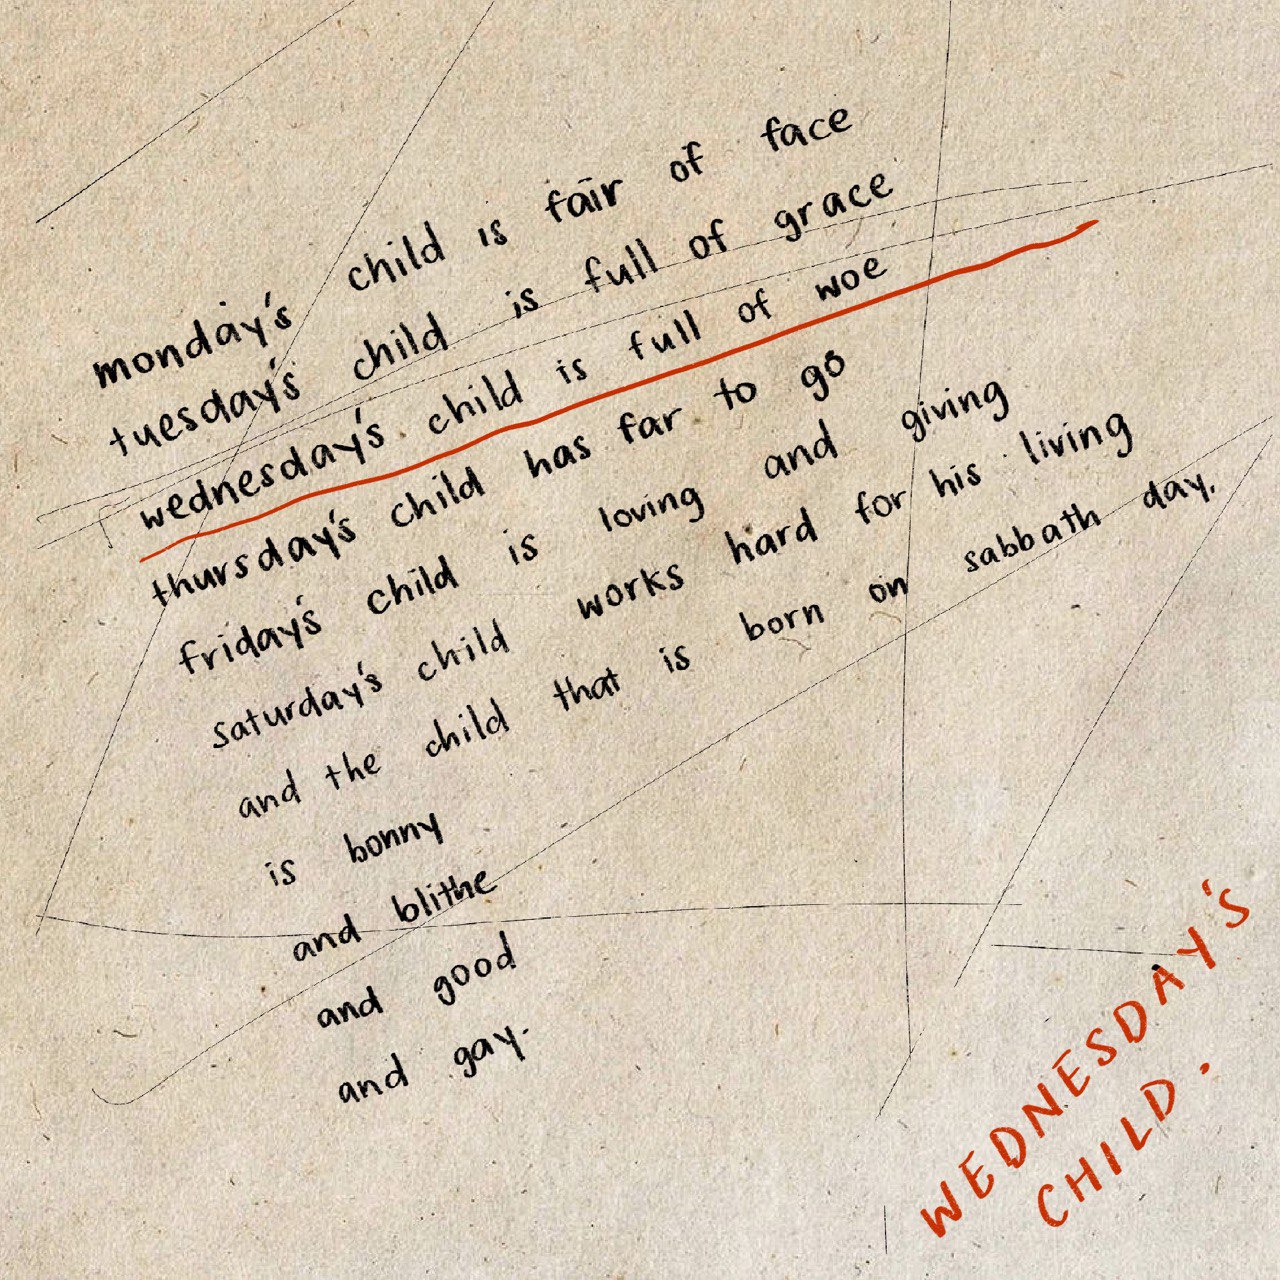 monday's child is fair of face
tuesday's child is full of grace
wednesday's child is full of woe
thursday's child has far to go
friday's child is loving and giving
saturday's child works hard for his living
and the child that is born on sabbath day.
is bonny
and blithe
and good
and gay.
WEDNESDAY'S
CHILD.